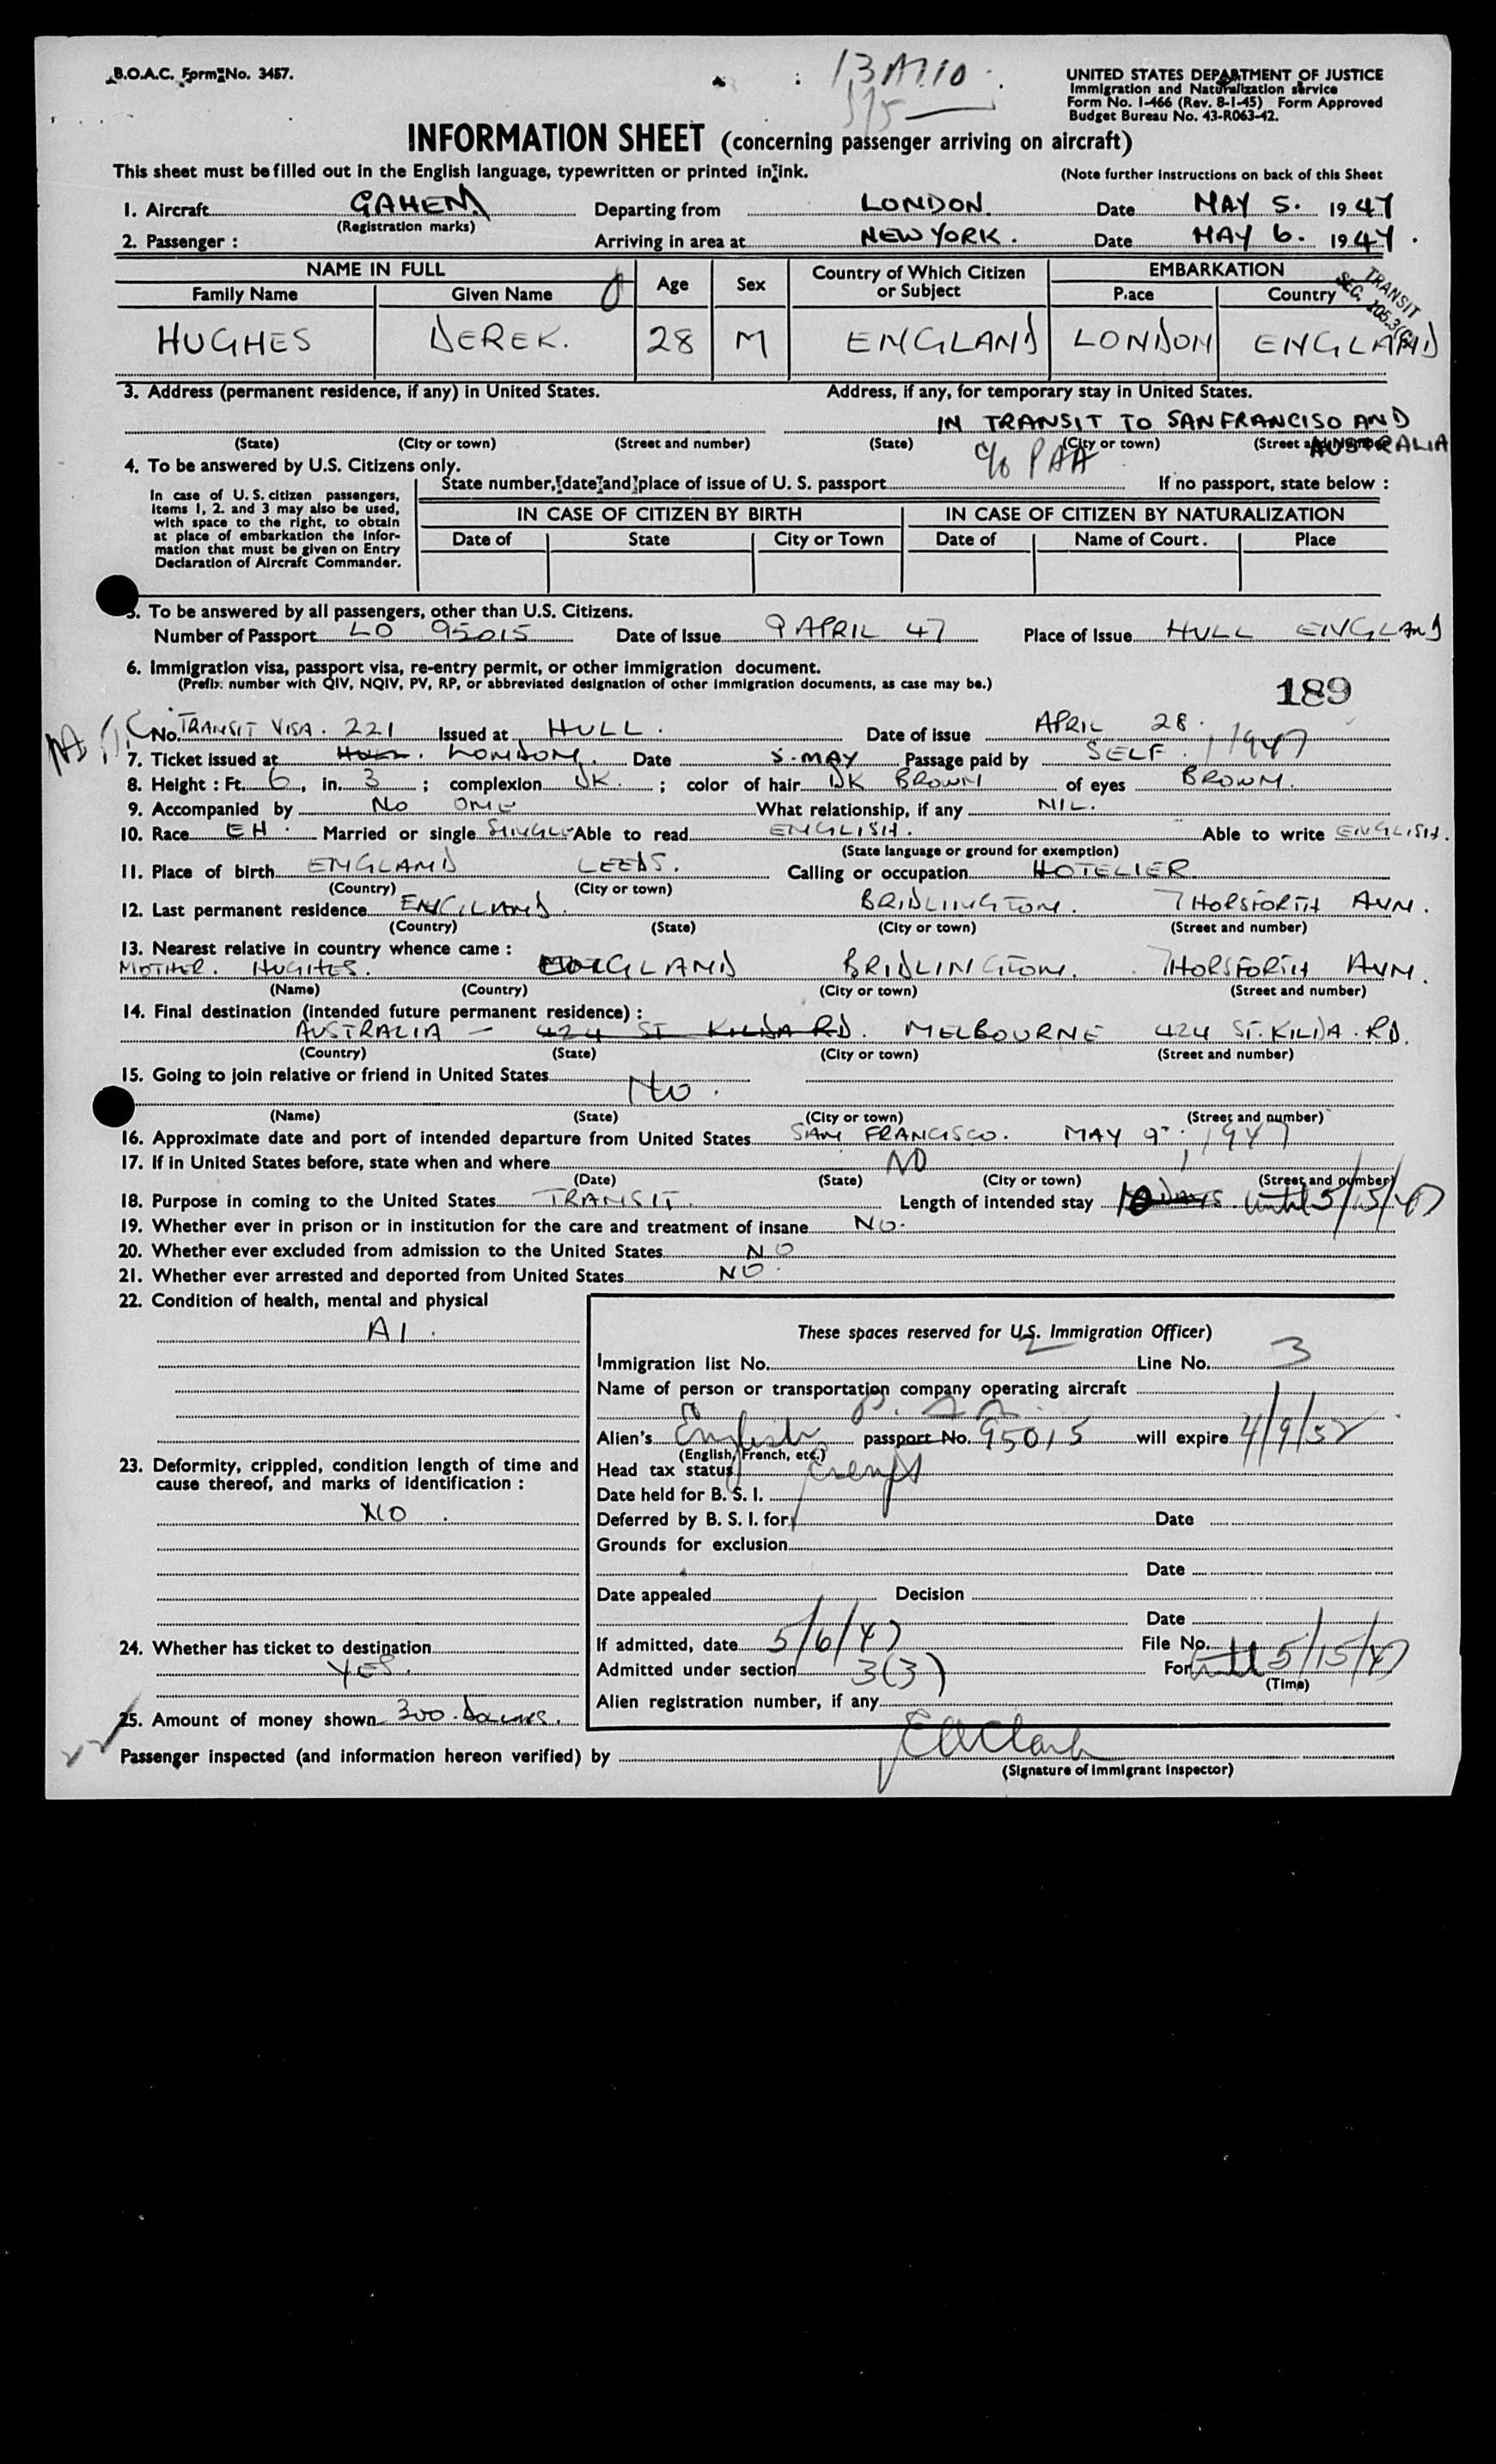 B.O.A.C. Form No. 3457.
UNITED STATES DEPARTMENT OF JUSTICE
Immigration and Naturalization service
Form No. I-466 (Rev. 8-1-45) Form Approved
Budget Bureau No. 43-R063-42.
INFORMATION SHEET (concerning passenger arriving on aircraft)
This sheet must be filled out in the English language, typewritten or printed in ink. (Note further instructions on back of this Sheet
1. Aircraft GAHEM Departing from LONDON. Date MAY 5. 1947
(Registration marks)
2. Passenger : Arriving in area at NEW YORK. Date MAY 6. 1947.
NAME IN FULL Age Sex Country of Which Citizen or Subject EMBARKATION
Family Name Given Name Place Country
TRANSIT
SEC. 105.3(C)
HUGHES DEREK. 28 M ENGLAND LONDON ENGLAND
3. Address (permanent residence, if any) in United States. Address, if any, for temporary stay in United States.
IN TRANSIT TO SANFRANCISO AND AUSTRALIA
(State) (City or town) (Street and number) (State) (City or town) (Street and number)
c/o PAA
4. To be answered by U.S. Citizens only.
State number, date and place of issue of U. S. passport If no passport, state below :
In case of U. S. citizen passengers,
items 1, 2. and 3 may also be used,
with space to the right, to obtain
at place of embarkation the Infor-
mation that must be given on Entry
Declaration of Aircraft Commander.
IN CASE OF CITIZEN BY BIRTH IN CASE OF CITIZEN BY NATURALIZATION
Date of State City or Town Date of Name of Court. Place
5. To be answered by all passengers, other than U.S. Citizens.
Number of Passport LO 95015 Date of Issue 9 APRIL 47 Place of Issue HULL ENGLAND
6. Immigration visa, passport visa, re-entry permit, or other immigration document.
(Prefix number with QIV, NQIV, PV, RP, or abbreviated designation of other immigration documents, as case may be.)
189
No. TRANSIT VISA. 221 Issued at HULL. Date of issue APRIL 28. 1947
7. Ticket issued at HULL. LONDON. Date 5. MAY Passage paid by SELF.
8. Height : Ft. 6, in. 3 ; complexion DK. ; color of hair DK BROWN of eyes BROWN.
9. Accompanied by NO ONE What relationship, if any NIL.
10. Race EH. Married or single SINGLE Able to read ENGLISH. Able to write ENGLISH.
(State language or ground for exemption)
11. Place of birth ENGLAND LEEDS. Calling or occupation HOTELIER.
(Country) (City or town)
12. Last permanent residence ENGLAND. BRIDLINGTON. 7 HORSFORTH AVN.
(Country) (State) (City or town) (Street and number)
13. Nearest relative in country whence came :
MOTHER. HUGHES. ENGLAND BRIDLINGTON. 7 HORSFORTH AVN.
(Name) (Country) (City or town) (Street and number)
14. Final destination (intended future permanent residence) :
AUSTRALIA — 424 ST KILDA RD. MELBOURNE 424 ST. KILDA. RD.
(Country) (State) (City or town) (Street and number)
15. Going to join relative or friend in United States
NO.
(Name) (State) (City or town) (Street and number)
16. Approximate date and port of intended departure from United States SAN FRANCISCO. MAY 9. 1947
17. If in United States before, state when and where NO
(Date) (State) (City or town) (Street and number)
18. Purpose in coming to the United States TRANSIT. Length of intended stay 10 DAYS. until 5/15/47
19. Whether ever in prison or in institution for the care and treatment of insane NO.
20. Whether ever excluded from admission to the United States NO
21. Whether ever arrested and deported from United States NO.
22. Condition of health, mental and physical
A1.
These spaces reserved for U.S. Immigration Officer)
Immigration list No. 2 Line No. 3
Name of person or transportation company operating aircraft
P. A A.
Alien's English passport No. 95015 will expire 4/9/52
(English, French, etc.)
23. Deformity, crippled, condition length of time and
cause thereof, and marks of identification :
NO.
Head tax status exempt
Date held for B. S. I.
Deferred by B. S. I. for Date
Grounds for exclusion
Date
Date appealed Decision
Date
24. Whether has ticket to destination
YES.
If admitted, date 5/6/47 File No.
Admitted under section 3(3) For until 5/15/47
(Time)
Alien registration number, if any
25. Amount of money shown 300. DOLLARS.
Passenger inspected (and information hereon verified) by E A Clark
(Signature of Immigrant Inspector)